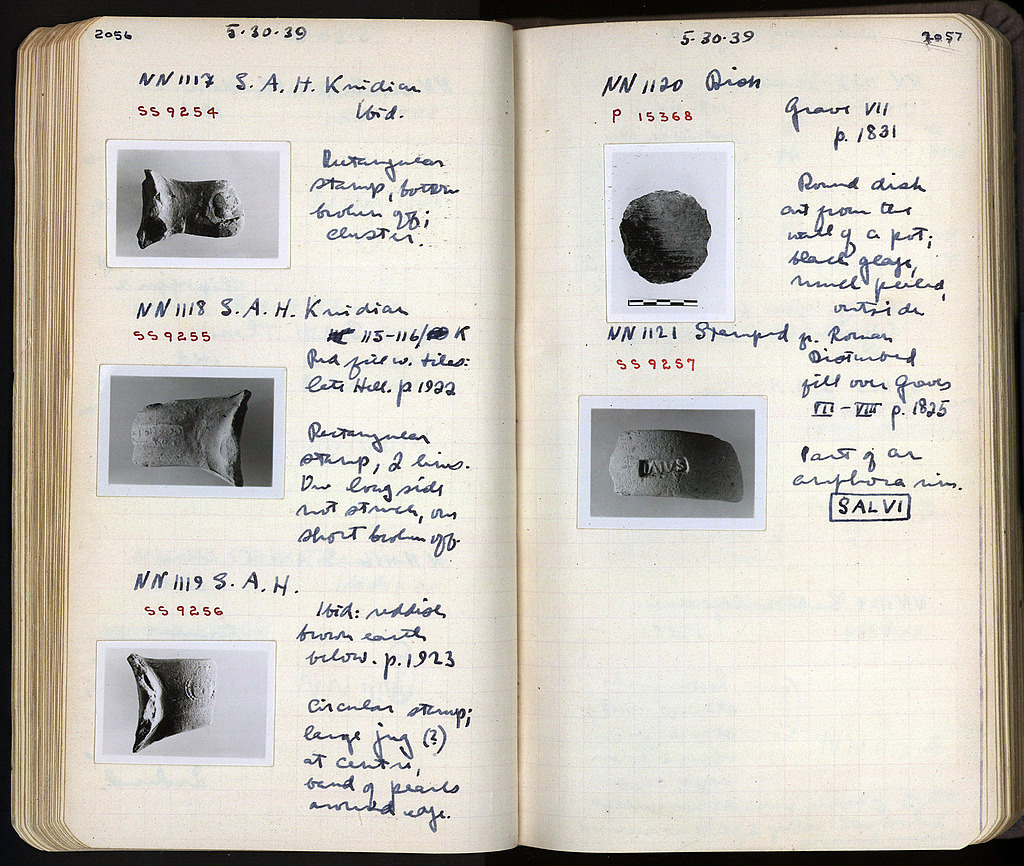 2056
5·30·39
NN 1117 S. A. H. Knidian
SS 9254
Ibid.
Rectangular
stamp, bottom
broken off;
cluster.
NN 1118 S. A. H. Knidian
SS 9255
115-116/ K
Red fill w. tiles:
late Hell. p 1922
Rectangular
stamp, 2 lines.
One long side
not struck, one
short broken off.
NN 1119 S. A. H.
SS 9256
Ibid: reddish
brown earth
below. p. 1923
Circular stamp;
large jug (?)
at centre,
band of pearls
around edge.
5·30·39
2057
NN 1120 Disk
P 15368
Grave VII
p. 1831
Round disk
cut from the
wall of a pot;
black glaze,
much peeled,
outside
NN 1121 Stamped fr. Roman
SS 9257
Disturbed
fill over Graves
VII - VIII p. 1825
Part of an
amphora rim.
SALVI